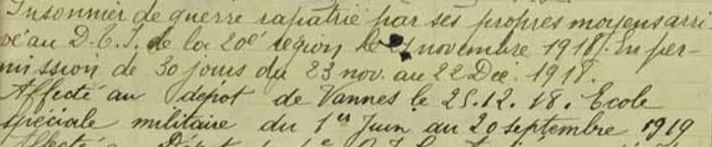 Prisonnier de guerre rapatrié par ses propres moyens arri
vé au D.C.I. de la 20e région le novembre 1918. En per-
mission de 30 jours du 23 nov. au 22 Déc. 1918.
Affecté au dépot de Vannes le 25.12.18. Ecole
spéciale militaire du 1er Juin au 20 septembre 1919